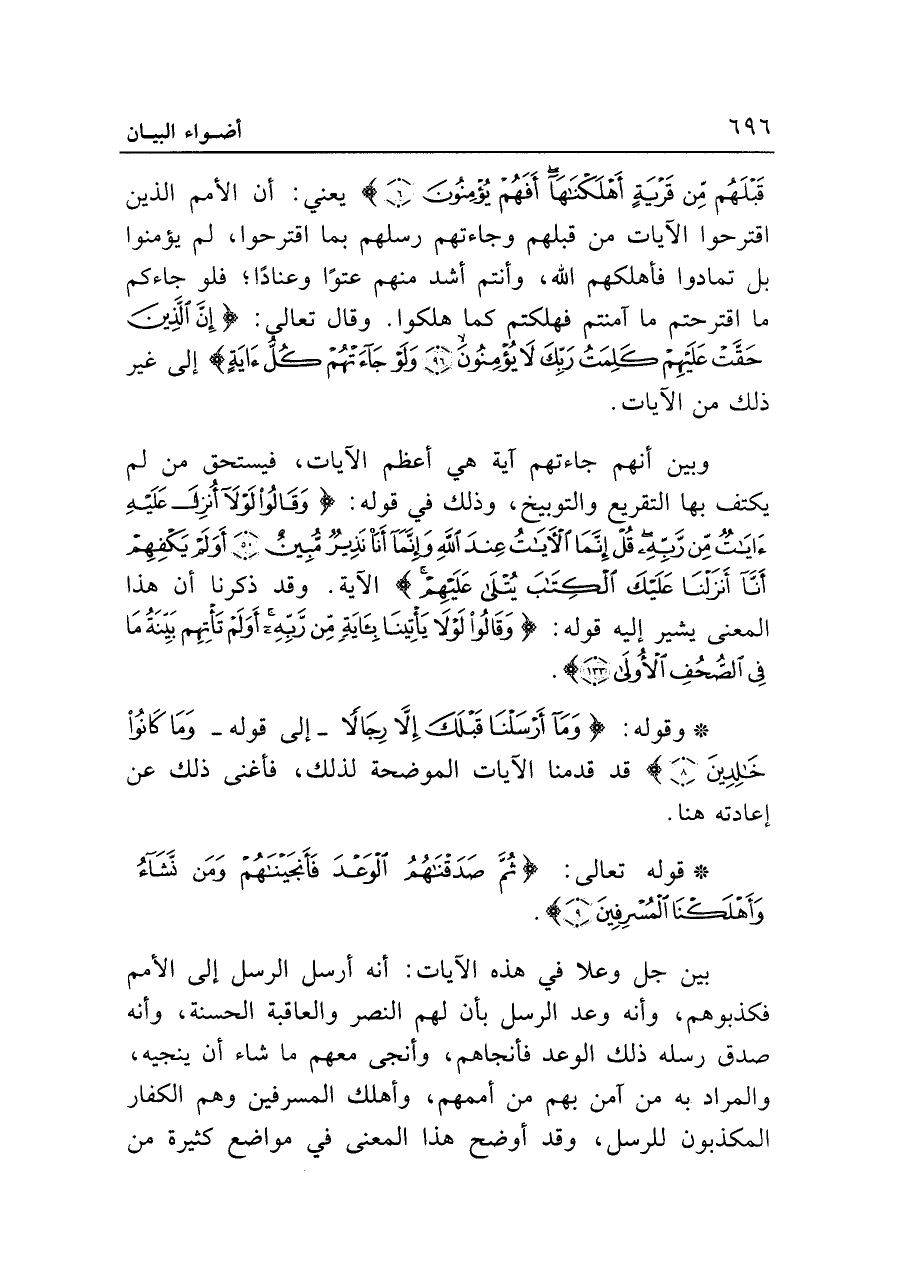 ٦٩٦ أضـواء البيـان
قَبْلَهُم مِّن قَرْيَةٍ أَهْلَكْنَٰهَآۖ أَفَهُمْ يُؤْمِنُونَ ﴿٦﴾ ﴾ يعني: أن الأمم الذين
اقترحوا الآيات من قبلهم وجاءتهم رسلهم بما اقترحوا، لم يؤمنوا
بل تمادوا فأهلكهم الله، وأنتم أشد منهم عتوًا وعنادًا؛ فلو جاءكم
ما اقترحتم ما آمنتم فهلكتم كما هلكوا. وقال تعالى: ﴿ إِنَّ ٱلَّذِينَ
حَقَّتْ عَلَيْهِمْ كَلِمَتُ رَبِّكَ لَا يُؤْمِنُونَۙ ﴿٩٦﴾ وَلَوْ جَآءَتْهُمْ كُلُّ ءَايَةٍ﴾ إلى غير
ذلك من الآيات.
وبين أنهم جاءتهم آية هي أعظم الآيات، فيستحق من لم
يكتف بها التقريع والتوبيخ، وذلك في قوله: ﴿ وَقَالُوا۟ لَوْلَآ أُنزِلَ عَلَيْهِ
ءَايَٰتٌ مِّن رَّبِّهِۦۖ قُلْ إِنَّمَا ٱلْءَايَٰتُ عِندَ ٱللَّهِ وَإِنَّمَآ أَنَا۠ نَذِيرٌ مُّبِينٌ ﴿٥٠﴾ أَوَلَمْ يَكْفِهِمْ
أَنَّآ أَنزَلْنَا عَلَيْكَ ٱلْكِتَٰبَ يُتْلَىٰ عَلَيْهِمْۚ ﴾ الآية. وقد ذكرنا أن هذا
المعنى يشير إليه قوله: ﴿ وَقَالُوا۟ لَوْلَا يَأْتِينَا بِـَٔايَةٍ مِّن رَّبِّهِۦٓۚ أَوَلَمْ تَأْتِهِم بَيِّنَةُ مَا
فِى ٱلصُّحُفِ ٱلْأُولَىٰ ﴿١٣٣﴾﴾.
* وقوله: ﴿ وَمَآ أَرْسَلْنَا قَبْلَكَ إِلَّا رِجَالًا ـ إلى قوله ـ وَمَا كَانُوا۟
خَٰلِدِينَ ﴿٨﴾ ﴾ قد قدمنا الآيات الموضحة لذلك، فأغنى ذلك عن
إعادته هنا.
* قوله تعالى: ﴿ ثُمَّ صَدَقْنَٰهُمُ ٱلْوَعْدَ فَأَنجَيْنَٰهُمْ وَمَن نَّشَآءُ
وَأَهْلَكْنَا ٱلْمُسْرِفِينَ ﴿٩﴾﴾.
بين جل وعلا في هذه الآيات: أنه أرسل الرسل إلى الأمم
فكذبوهم، وأنه وعد الرسل بأن لهم النصر والعاقبة الحسنة، وأنه
صدق رسله ذلك الوعد فأنجاهم، وأنجى معهم ما شاء أن ينجيه،
والمراد به من آمن بهم من أممهم، وأهلك المسرفين وهم الكفار
المكذبون للرسل، وقد أوضح هذا المعنى في مواضع كثيرة من